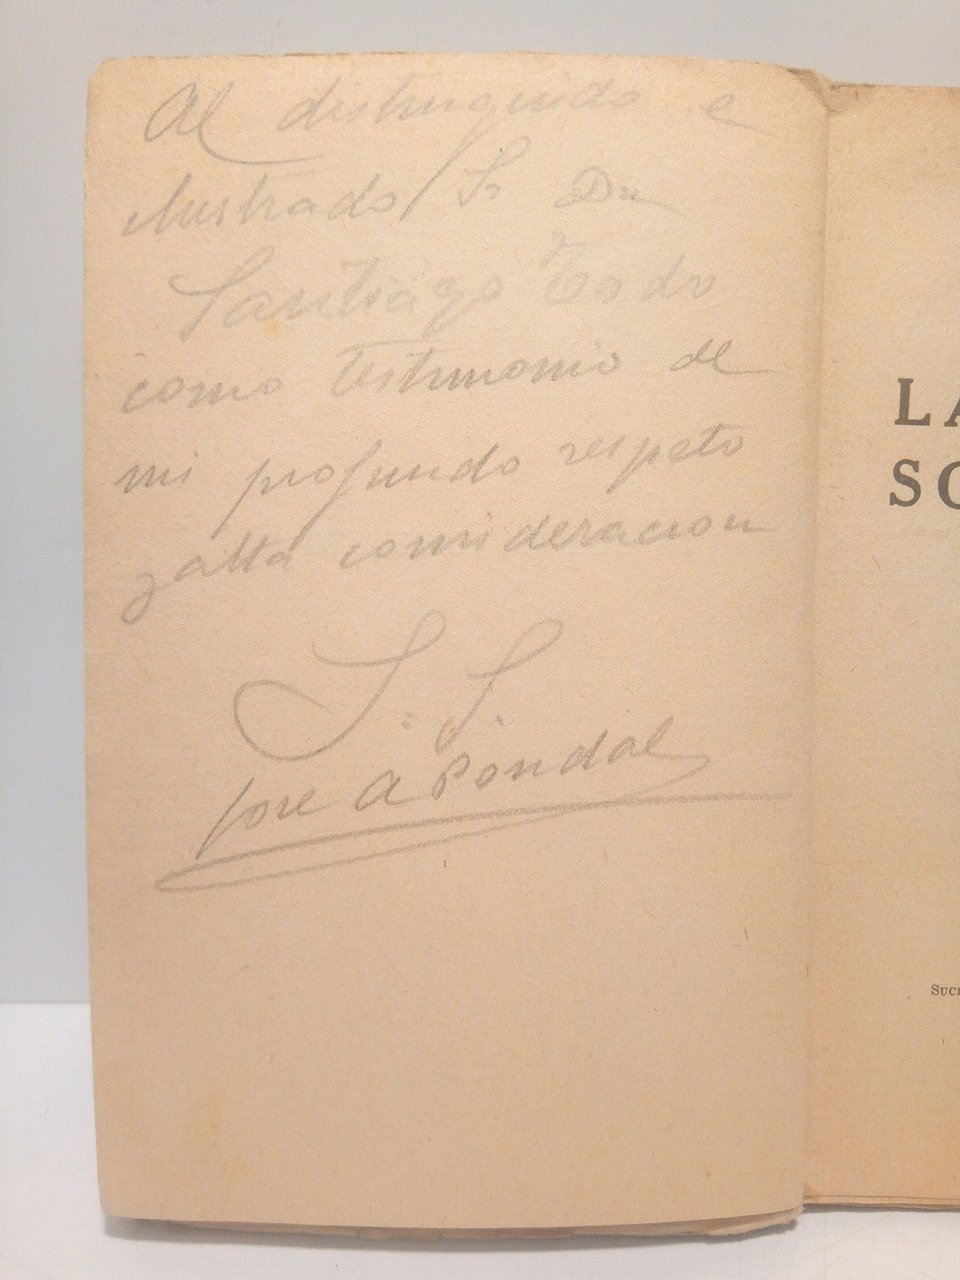 Al distinguido e
ilustrado Sr Dn
Santiago Todo
como testimonio de
mi profundo respeto
y alta consideracion
S. S.
Jose A Pondal
LA
SO
SUC